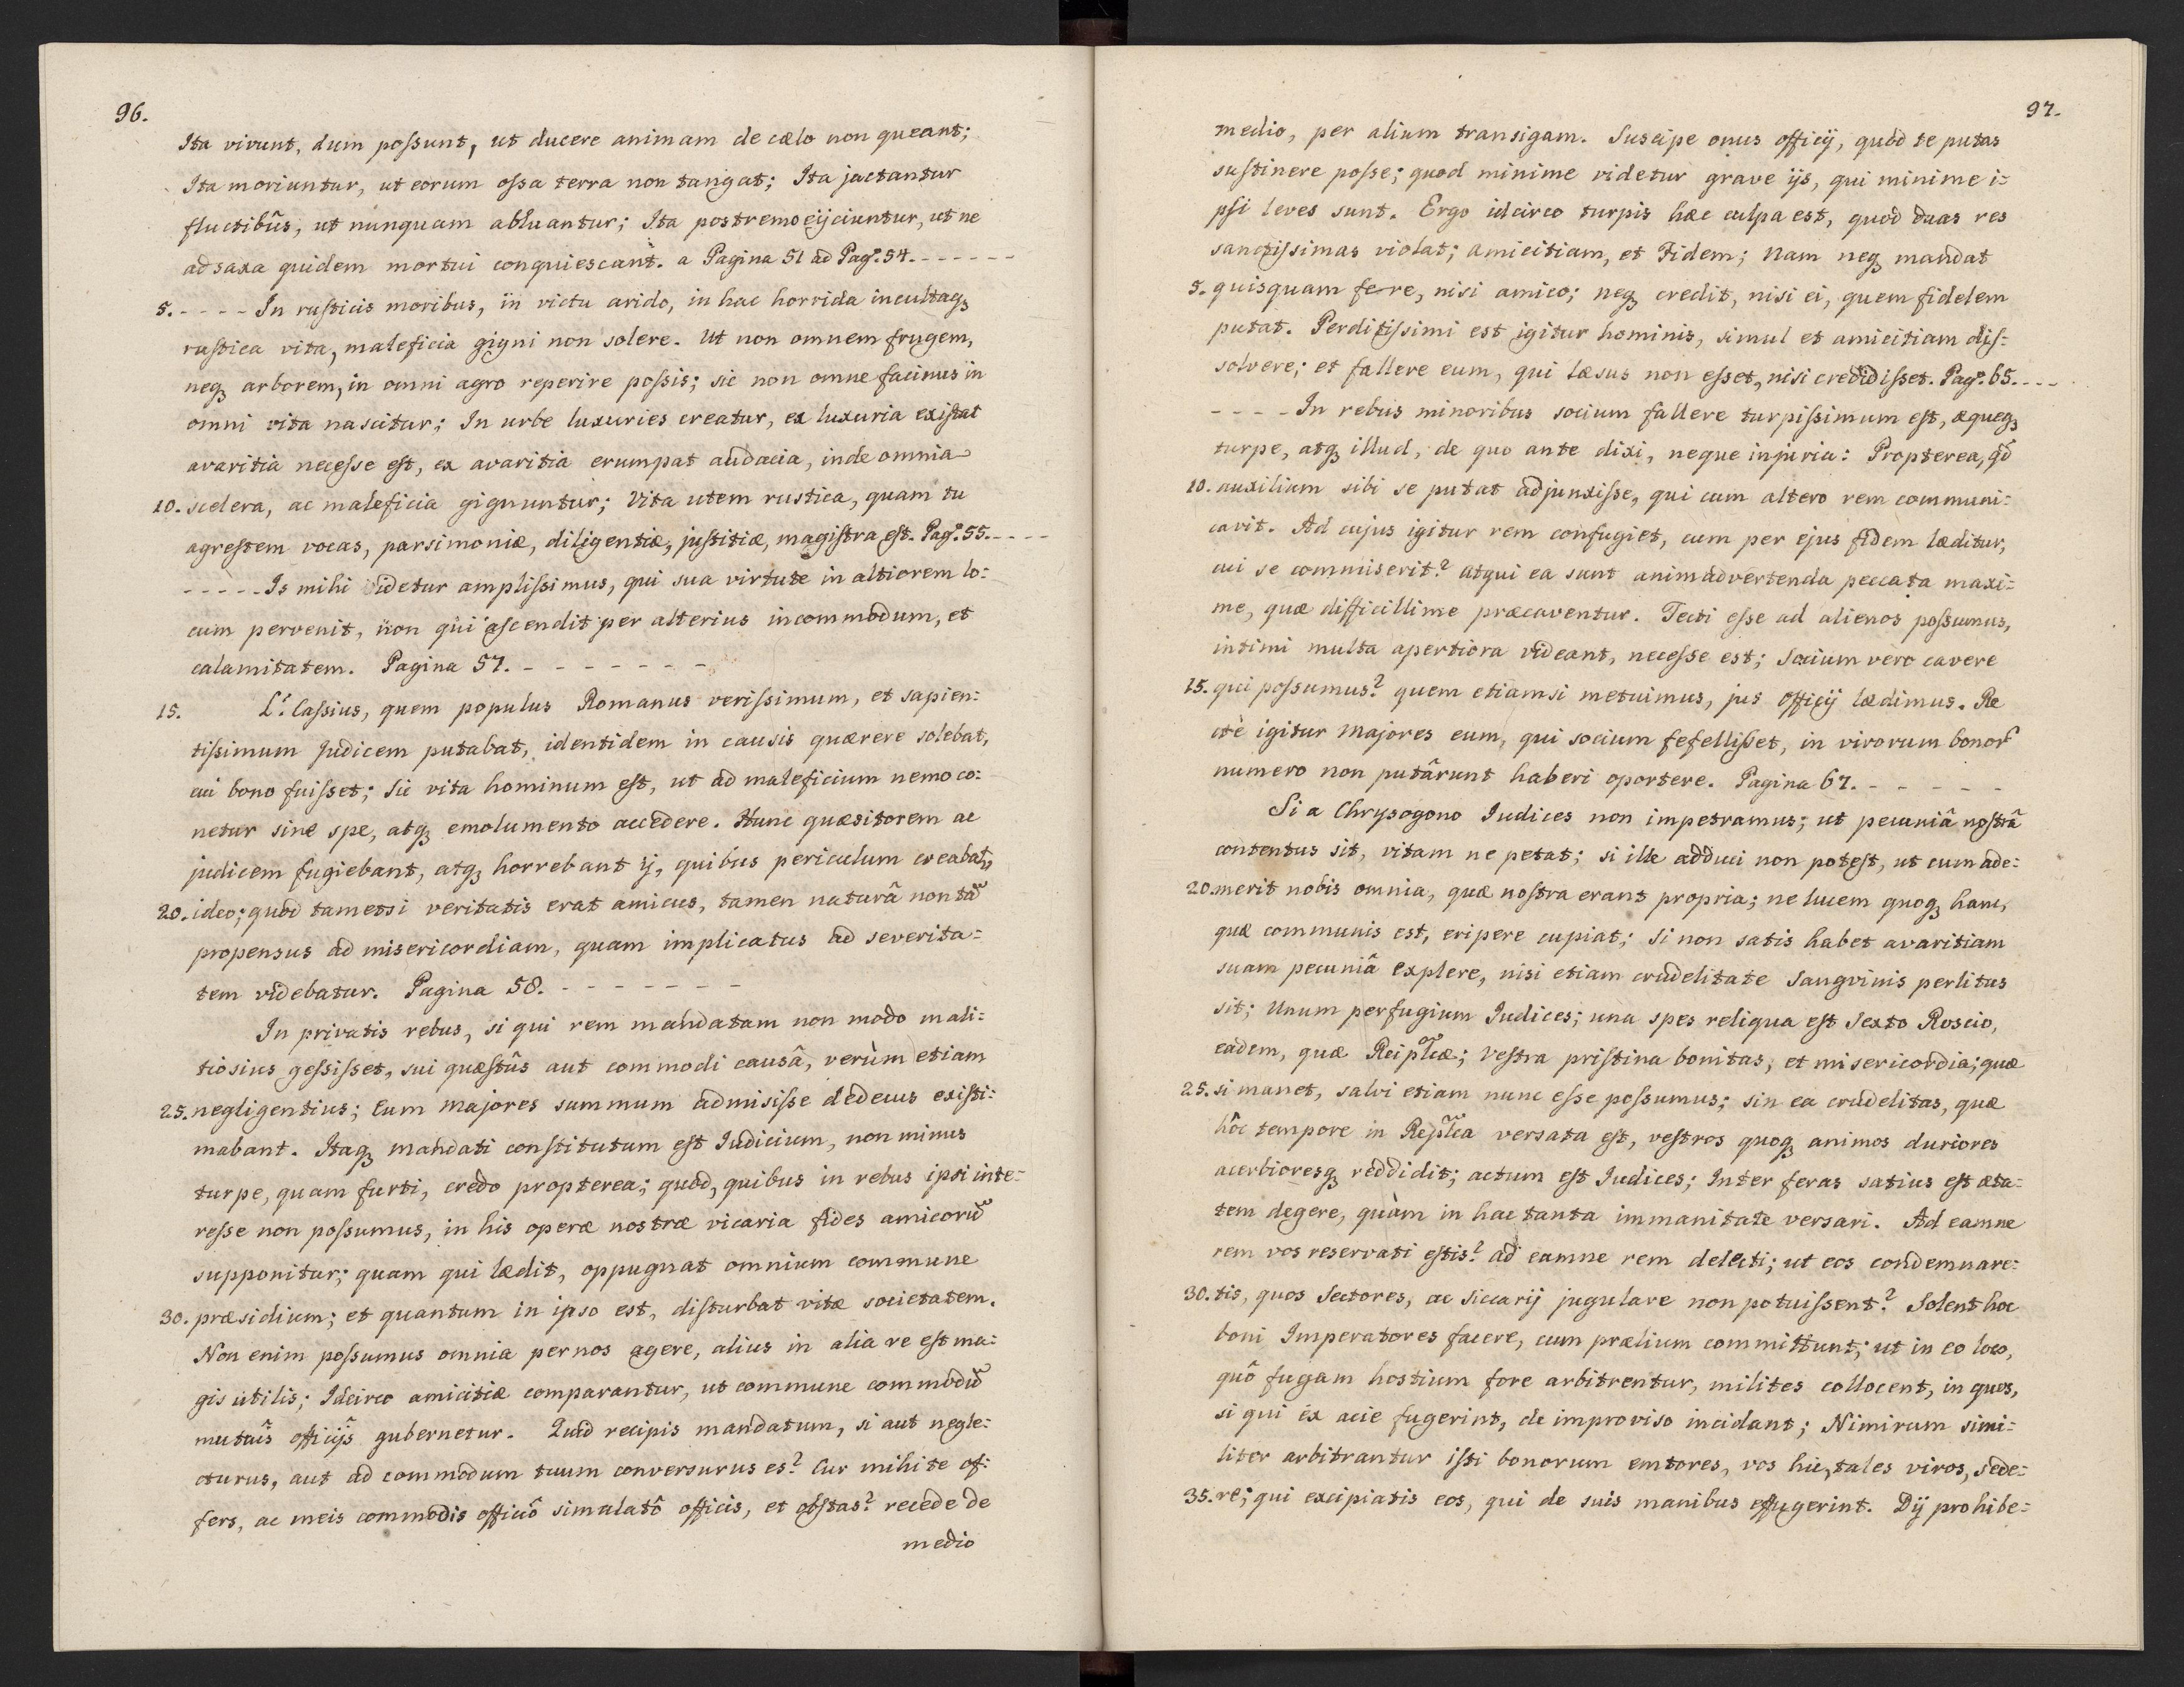 96.
Ita vivunt, dum possunt, ut ducere animam de cælo non queant;
Ita moriuntur, ut eorum ossa terra non tangat; Ita jactantur
fluctibûs, ut nunquam abluantur; Ita postremo eijciuntur, ut ne
ad saxa quidem mortui conquiescant. a Pagina 51 ad Pagª. 54. - - - - - - -
5. - - - - In rusticis moribus, in victu arido, in hac horrida incultaqꝫ
rustica vita, maleficia gigni non solere. Ut non omnem frugem,
neqꝫ arborem, in omni agro reperire possis; sic non omne facinus in
omni vita nascitur; In urbe luxuries creatur, ex luxuria existat
avaritia necesse est, ex avaritia erumpat audacia, inde omnia
10. scelera, ac maleficia gignuntur; Vita utem rustica, quam tu
agrestem vocas, parsimoniæ, diligentiæ, justitiæ, magistra est. Pagª. 55. - - - -
- - - - - Is mihi videtur amplissimus, qui sua virtute in altiorem lo=
cum pervenit, non qui ascendit per alterius incommodum, et
calamitatem. Pagina 57. - - - - - - - -
15. L: Cassius, quem populus Romanus verissimum, et sapien=
tissimum Judicem putabat, identidem in causis quærere solebat,
cui bono fuisset; Sic vita hominum est, ut ad maleficium nemo co=
netur sine spe, atqꝫ emolumento accedere. Hunc quæsitorem ac
judicem fugiebant, atqꝫ horrebant ij, quibus periculum creabatr,
20. ideo; quòd tametsi veritatis erat amicus, tamen naturâ non tã
propensus ad misericordiam, quam implicatus ad severita=
tem videbatur. Pagina 58. - - - - - - -
In privatis rebus, si qui rem mandatam non modo mali=
tiosius gessisset, sui quæstûs aut commodi causâ, verùm etiam
25. negligentius; Eum majores summum admisisse dedecus existi=
mabant. Itaqꝫ mandati constitutum est Judicium, non minus
turpe, quam furti, credo propterea; quòd, quibus in rebus ipsi inte=
resse non possumus, in his operæ nostræ vicaria fides amicorũ
supponitur; quam qui lædit, oppugnat omnium commune
30. præsidium; et quantum in ipso est, disturbat vitæ societatem.
Non enim possumus omnia per nos agere, alius in alia re est ma=
gis utilis; Idcirco amicitiæ comparantur, ut commune commodũ
mutuîs officijs gubernetur. Quid recipis mandatum, si aut negle=
cturus, aut ad commodum tuum conversurus es? Cur mihi te of=
fers, ac meis commodis officiô simulatô officis, et obstas? recede de
medio
97.
medio, per alium transigam. Suscipe onus officij, quòd te putas
sustinere posse; quod minime videtur grave ijs, qui minime i=
psi leves sunt. Ergo idcirco turpis hæc culpa est, quòd duas res
sanctissimas violat; amicitiam, et Fidem; Nam neqꝫ mandat
5. quisquam fere, nisi amico; neqꝫ credit, nisi ei, quem fidelem
putat. Perditissimi est igitur hominis, simul et amicitiam dis=
solvere; et fallere eum, qui læsus non esset, nisi credidisset. Pagª. 65. - - -
- - - - In rebus minoribus socium fallere turpissimum est, æqueqꝫ
turpe, atqꝫ illud, de quo ante dixi, neque injuria: Propterea, qd̃
10. auxilium sibi se putat adjunxisse, qui cum altero rem communi=
cavit. Ad cujus igitur rem confugiet, cum per ejus fidem læditur,
cui se commiserit? atqui ea sunt animadvertenda peccata maxi=
me, quæ difficillime præcaventur. Tecti esse ad alienos possumus,
intimi multa apertiora videant, necesse est; socium vero cavere
15. qui possumus? quem etiamsi metuimus, jus officij lædimus. Re
ctè igitur Majores eum, qui socium fefellisset, in virorum bonor̃
numero non putârunt haberi oportere. Pagina 67. - - - - -
Si a Chrysogono Iudices non impetramus; ut pecuniâ nostrâ
contentus sit, vitam ne petat; si ille adduci non potest, ut cum ade=
20. merit nobis omnia, quæ nostra erant propria; ne lucem quoqꝫ hanc,
quæ communis est, eripere cupiat; Si non satis habet avaritiam
suam pecuniâ explere, nisi etiam crudelitate Sangvinis perlitus
sit; Unum perfugium Iudices; una spes reliqua est Sexto Roscio,
eadem, quæ Reiplcæ; Vestra pristina bonitas, et misericordia; quæ
25. si manet, salvi etiam nunc esse possumus; sin ea crudelitas, quæ
hôc tempore in Replca versata est, vestros quoqꝫ animos duriores
acerbioresqꝫ reddidit; actum est Iudices; Inter feras satius est æta=
tem degere, quàm in hac tanta immanitate versari. Ad eamne
rem vos reservati estis? ad eamne rem delecti; ut eos condemnare=
30. tis, quos Sectores, ac siccarij jugulare non potuissent? Solent hoc
boni Imperatores facere, cum prælium committunt; ut in eo loco,
quô fugam hostium fore arbitrentur, milites collocent, in quos,
si qui ex acie fugerint, de improviso incidant; Nimirum simi=
liter arbitrantur isti bonorum emtores, vos hic, tales viros, sede=
35. re; qui excipiatis eos, qui de suis manibus effugerint. Dij prohibe=